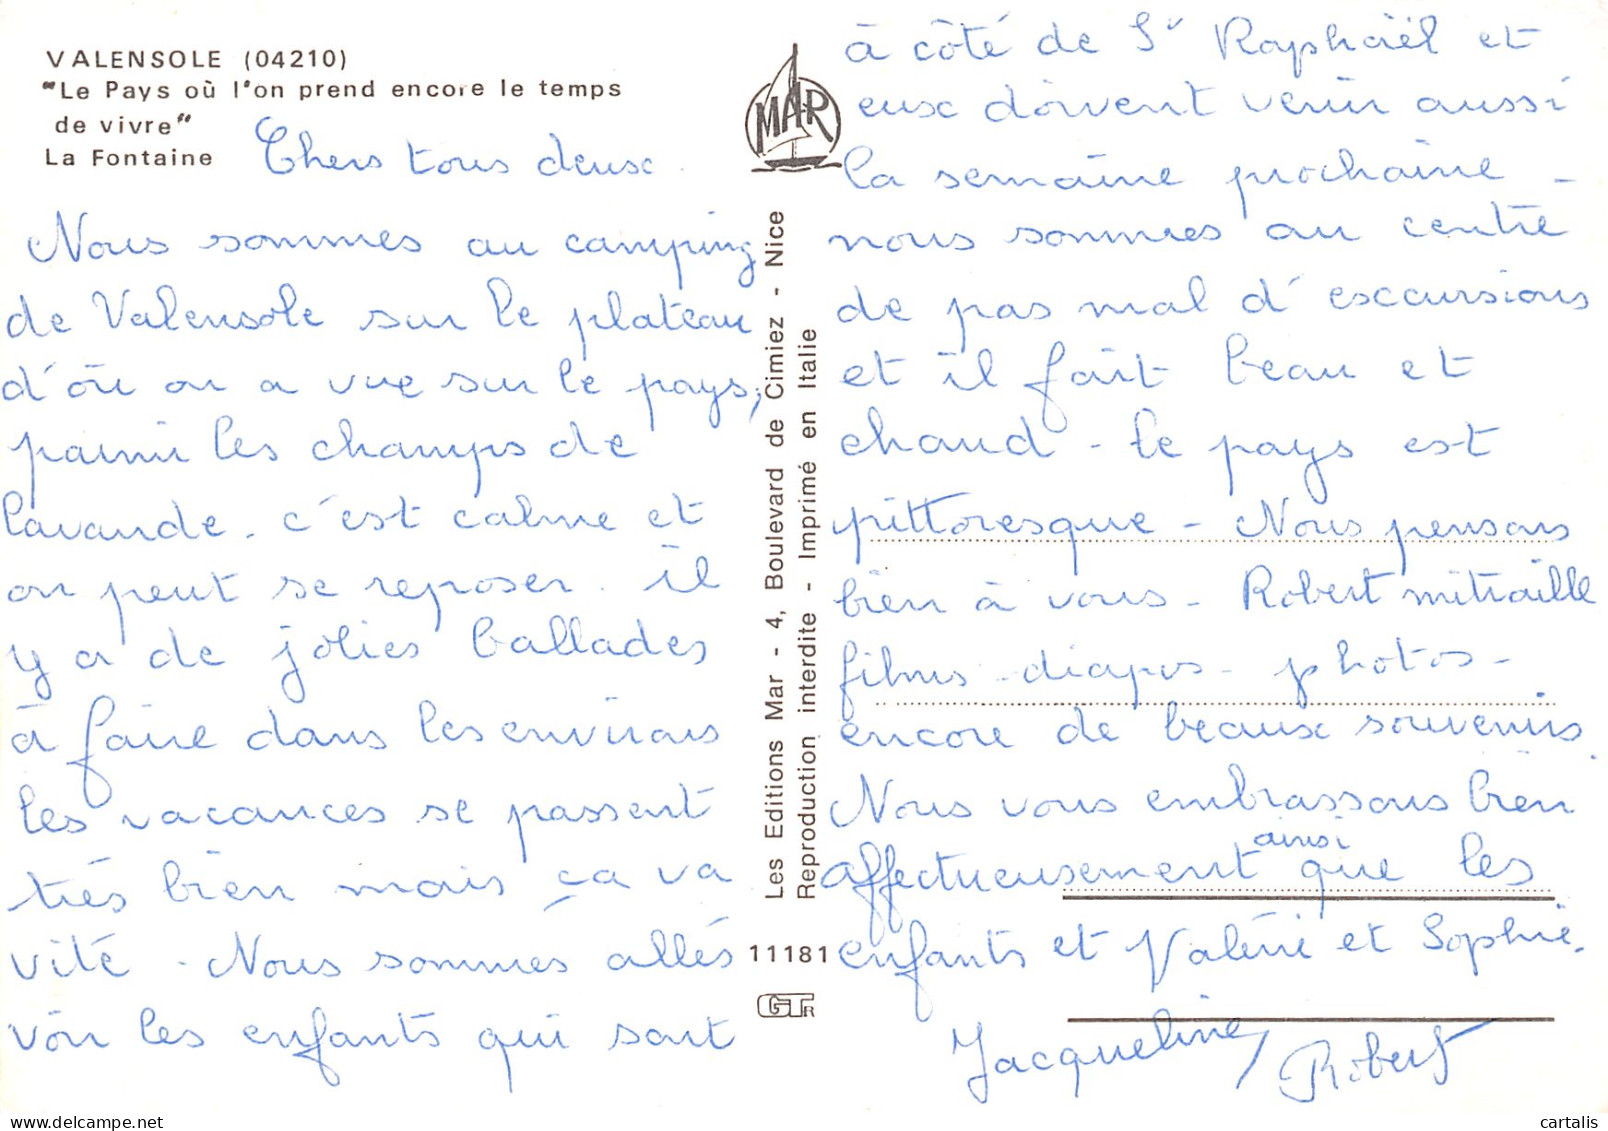 VALENSOLE (04210)
"Le Pays où l'on prend encore le temps
de vivre"
La Fontaine
Chers tous deux.
Nous sommes au camping
de Valensole sur le plateau
d'où on a vue sur le pays,
parmi les champs de
lavande. c'est calme et
on peut se reposer. il
y a de jolies ballades
à faire dans les environs
les vacances se passent
très bien mais ça va
vite. Nous sommes allés
voir les enfants qui sont
MAR
Les Editions Mar - 4, Boulevard de Cimiez - Nice
Reproduction interdite - Imprimé en Italie
11181
GTR
à côté de St Raphaël et
eux doivent venir aussi
la semaine prochaine -
nous sommes au centre
de pas mal d'excursions
et il fait beau et
chaud - le pays est
pittoresque - Nous pensons
bien à vous - Robert mitraille
films - diapos - photos -
encore de beaux souvenirs.
Nous vous embrassons bien
affectueusement ainsi que les
enfants et Valérie et Sophie.
Jacqueline, Robert
cartalis